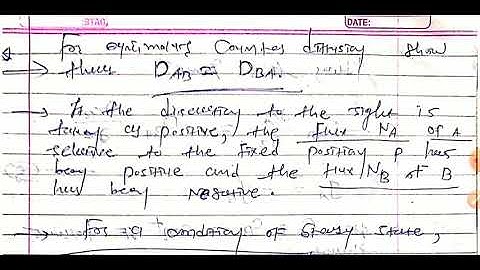 DATE:
For Counter diffusion show
thus DAB = DBA.
→ If the direction to the right is
taken as positive, the flux NA of A
relative to the fixed position P has
been positive and the flux NB of B
has been negative.
→ For a condition of steady state,